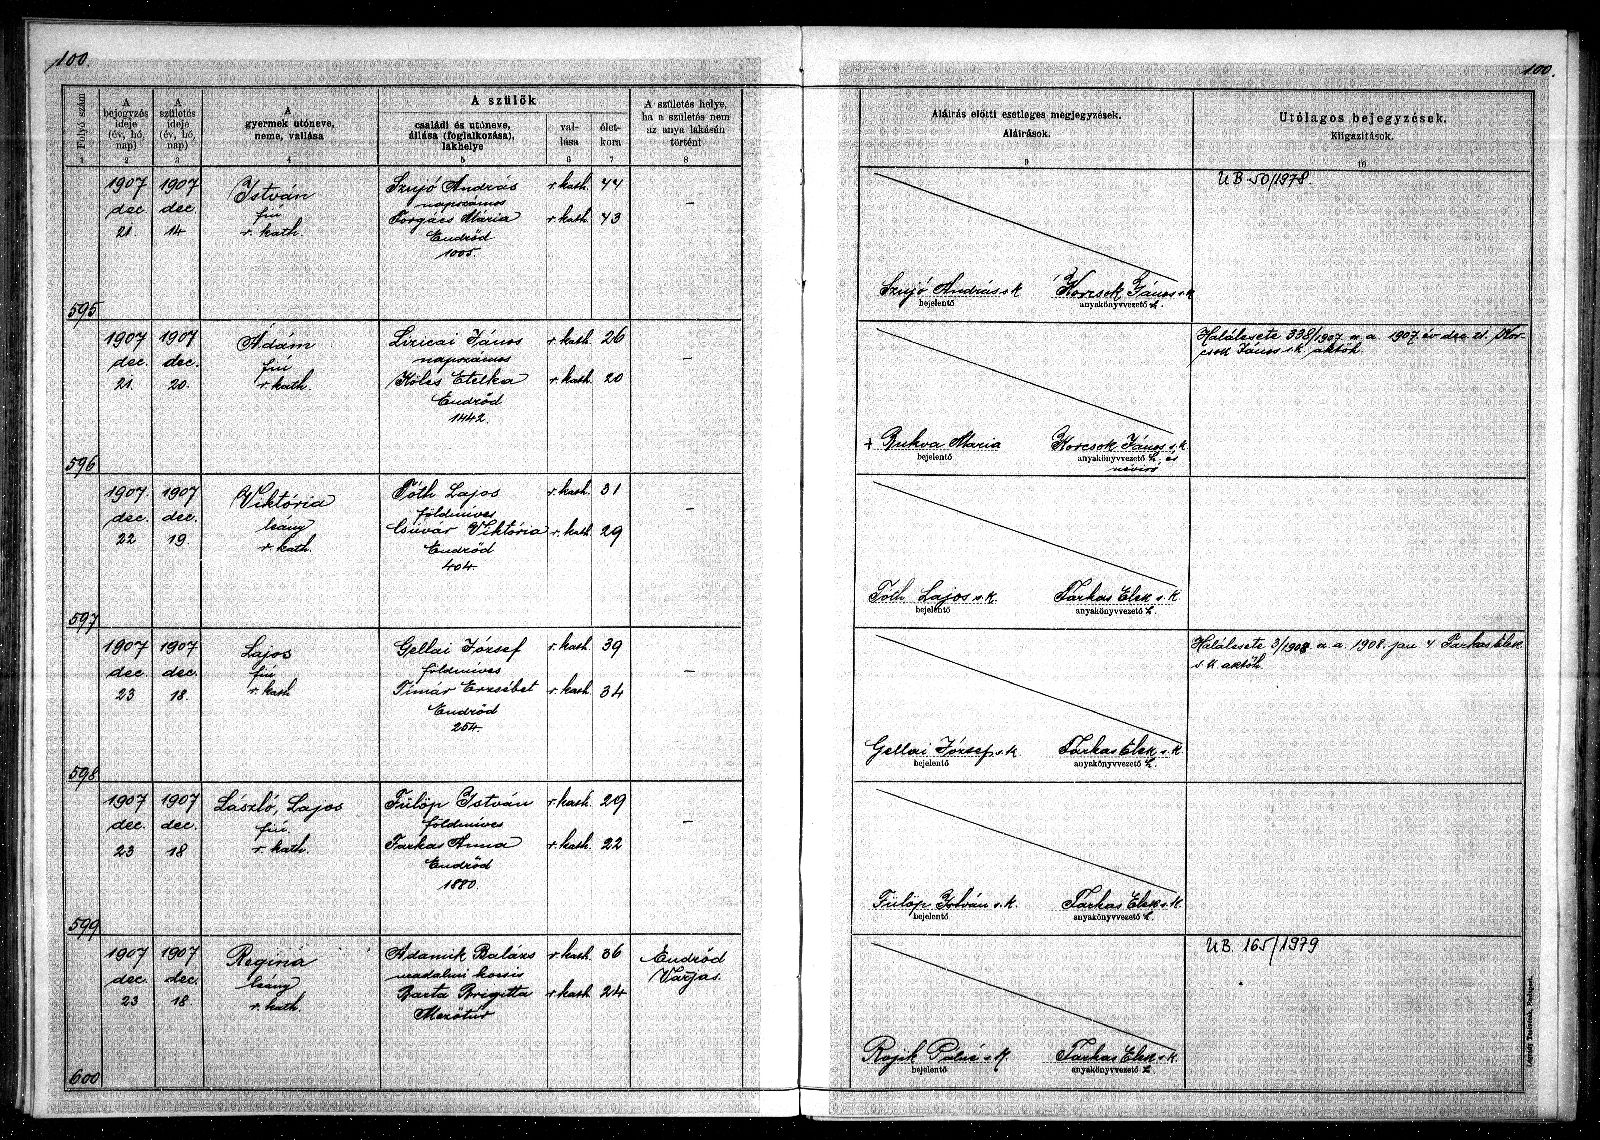 100.
100.
Folyó szám
A bejegyzés ideje (év, hó, nap)
A születés ideje (év, hó, nap)
A gyermek utóneve, neme, vallása
A szülők
családi és utóneve, állása (foglalkozása), lakhelye
vallása
életkora
A születés helye, ha a születés nem az anya lakásán történt
Aláírás előtti esetleges megjegyzések. Aláírások.
Utólagos bejegyzések. Kiigazítások.
1 2 3 4 5 6 7 8 9 10
595
1907 dec 21
1907 dec. 14
István
fiú
r. kath.
Szujó András r. kath. 44
napszámos
Forgács Mária r. kath. 43
Endrőd
1005.
–
Szujó András s k
bejelentő
Korcsok János s k
anyakönyvvezető h.
UB 50/1978.
596
1907 dec. 21.
1907 dec. 20.
Ádám
fiú
r. kath.
Lizicai János r. kath. 26
napszámos
Köles Etelka r. kath. 20
Endrőd
1442.
–
+ Bukva Maria
bejelentő
Korcsok János s. k.
anyakönyvvezető h. és
névíró
Halálesete 338/1907 a. a. 1907. év dec 21. Kor-
csok János s. k. aktőh.
597
1907. dec. 22
1907 dec. 19
Viktória
leány
r. kath.
Tóth Lajos r. kath. 31
földmíves
Csúvár Viktória r. kath. 29
Endrőd
404.
–
Tóth Lajos s. k.
bejelentő
Farkas Elek s. k.
anyakönyvvezető h.
598
1907 dec. 23
1907 dec. 18.
Lajos
fiú
r. kath
Gellai József r. kath. 39
földmíves
Timár Erzsébet r. kath. 34
Endrőd
254.
–
Gellai József s k
bejelentő
Farkas Elek s. k.
anyakönyvvezető h.
Halálesete 3/1908 a. a. 1908. jan 4 Farkas Elek
s k aktőh
599
1907 dec. 23
1907 dec. 18
László, Lajos
fiú.
r. kath.
Fülöp István r. kath. 29
földmíves
Farkas Anna r. kath. 22
Endrőd
1880.
–
Fülöp István s. k.
bejelentő
Farkas Elek s. k.
anyakönyvvezető h.
600
1907 dec. 23
1907 dec. 18
Regina
leány
r. kath.
Adamik Balázs r. kath. 36
uradalmi kocsis
Barta Brigitta r. kath. 24
Mezőtúr
Endrőd
Varjas.
s k
bejelentő
Farkas Elek s. k.
anyakönyvvezető h.
UB. 165/1979